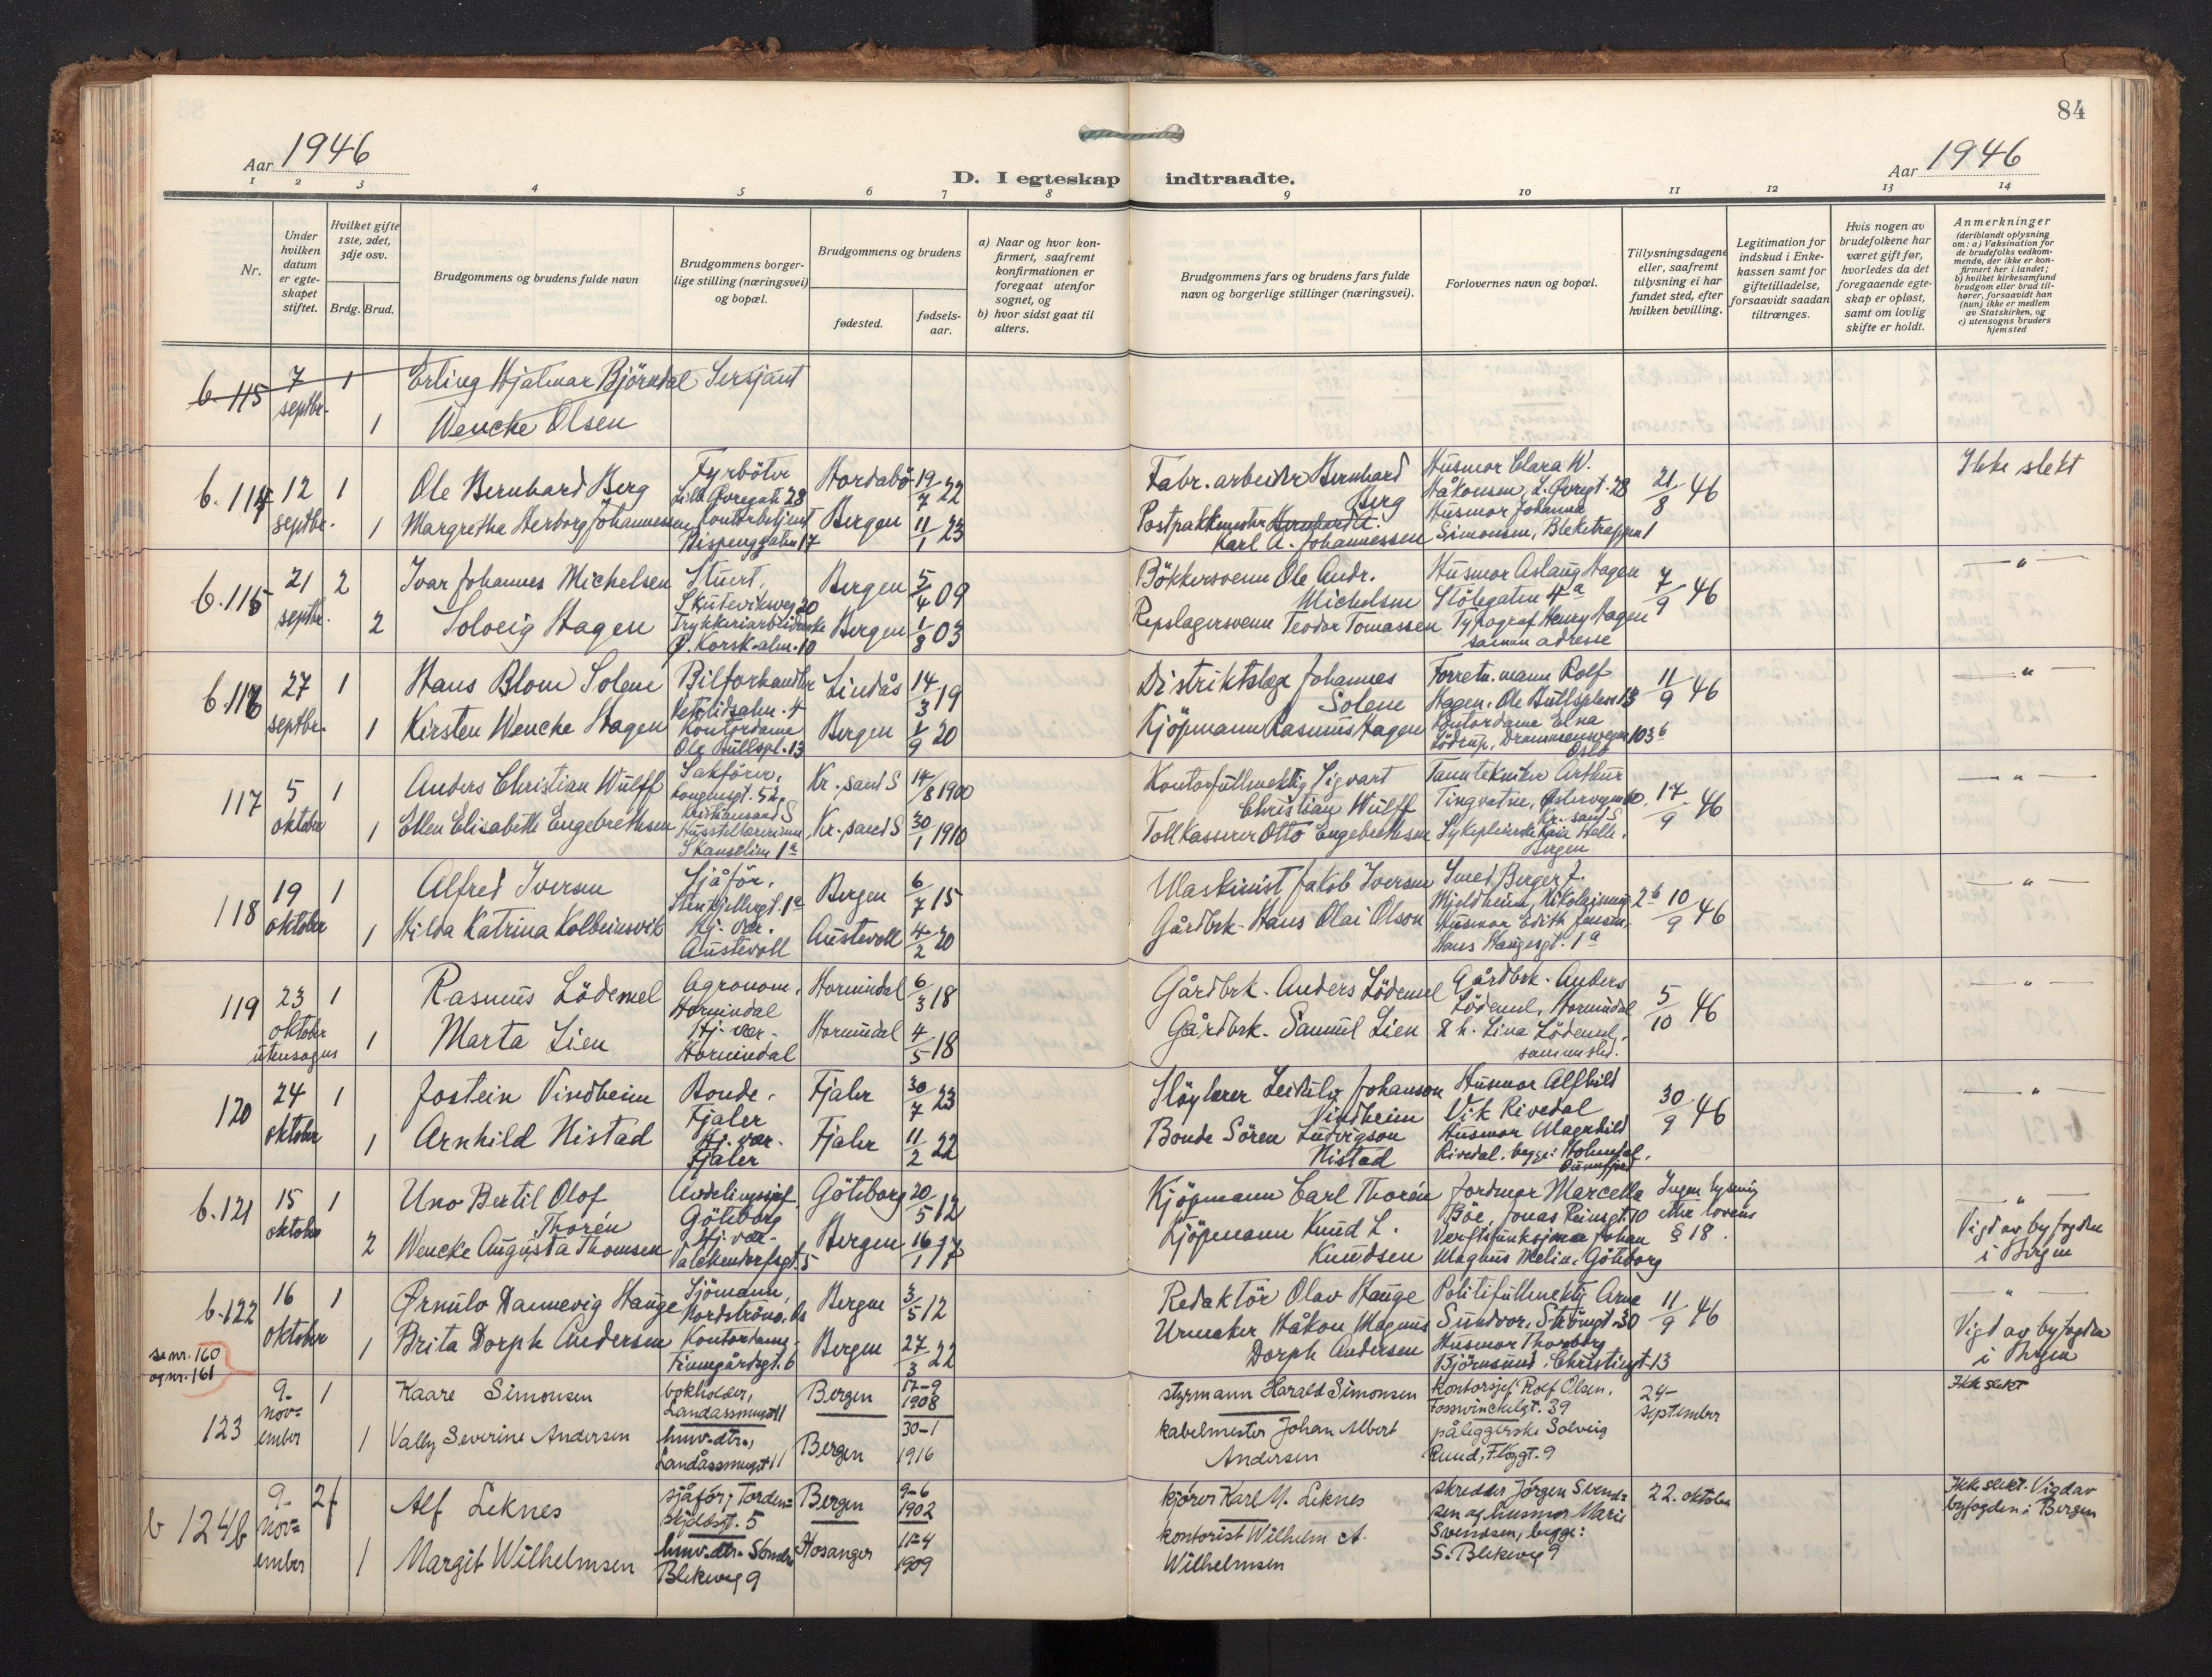 84
Aar 1946
Aar 1946
D. I egteskap indtraadte.
1 2 3 4 5 6 7 8 9 10 11 12 13 14
Nr.
Under hvilken datum er egteskapet stiftet.
Hvilket gifte 1ste, 2det, 3dje osv.
Brdg. Brud.
Brudgommens og brudens fulde navn
Brudgommens borgerlige stilling (næringsvei) og bopæl.
Brudgommens og brudens
fødested.
fødselsaar.
a) Naar og hvor konfirmert, saafremt konfirmationen er foregaat utenfor sognet, og
b) hvor sidst gaat til alters.
Brudgommens fars og brudens fars fulde navn og borgerlige stillinger (næringsvei).
Forlovernes navn og bopæl.
Tillysningsdagene eller, saafremt tillysning ei har fundet sted, efter hvilken bevilling.
Legitimation for indskud i Enkekassen samt for giftetilladelse, forsaavidt saadan tiltrænges.
Hvis nogen av brudefolkene har været gift før, hvorledes da det foregaaende egteskap er opløst, samt om lovlig skifte er holdt.
Anmerkninger
(deriblandt oplysning om: a) Vaksination for de brudefolks vedkommende, der ikke er konfirmert her i landet; b) hvilket kirkesamfund brudgom eller brud tilhører, forsaavidt han (hun) ikke er medlem av Statskirken, og c) utensogns bruders hjemsted
b. 115 7 septbr. 1 Erling Hjalmar Björndal Sersjant
1 Wencke Olsen
b. 114 12 septbr. 1 Ole Bernhard Berg Fyrböter Lille Øvregate 28 Hordabö 19/7 22 Fabr. arbeider Bernhard Berg Husmor Clara W. Håkonsen, L. Øvregt. 28 21/8 46 Ikke slekt
1 Margretha Herborg Johannessen Kontorbetjent Bispenggaten 17 Bergen 11/1 23 Postpakkmester Bernhard A. Karl A. Johannessen Husmor Johanna Simonsen, Bleketrappen 1
b. 115 21 septbr. 2 Ivar Johannes Michelsen Stuert, Skuteviksveg 20 Bergen 5/4 09 Bökkersvenn Ole Andr. Michelsen Husmor Aslaug Hagen Stölegaten 4a 7/9 46 — " —
2 Solveig Hagen Trykkeriarbeiderske Ø. Korsk.alm. 10 Bergen 1/8 03 Repslagersvenn Teodor Tomassen Typograf Henry Hagen samme adresse
b. 116 27 septbr. 1 Hans Blom Solem Bilforhandler 4 Lindås 14/3 19 Distriktslege Johannes Solem Forretn.mann Rolf Hagen, Ole Bullsplass 13 11/9 46 — " —
1 Kirsten Wencke Hagen Kontordame Ole Bullspl. 13 Bergen 1/9 20 Kjöpmann Rasmus Hagen Kontordame Elna Lödrup, Drammensvegen 103b Oslo
117 5 oktober 1 Anders Christian Wulff Sakförer, Kristiansand S Kr.sand S 14/8 1900 Kontorfullmektig Sigvart Christian Wulff Tanntekniker Arthur Tingvatne, Østerveien 60, Kr.sand S 17/9 46 — " —
1 Ellen Elisabeth Engebrethsen Husstellærerinne Skanselien 1a Kr.sand S 30/1 1910 Tollkasserer Otto Engebrethsen Sykepleierske Kaia Halle, Bergen
118 19 oktober 1 Alfred Iversen Sjåför, Stenkjellergt. 1a Bergen 6/7 15 Maskinist Jakob Iversen Smed Berger J. Mjeldheim, 2b 10/9 46 — " —
1 Hilda Katrina Kolbeinsvik Hj. vær. Austevoll Austevoll 4/2 20 Gårdbrk. Hans Olai Olson Husmor Edith Jensen, Hans Haugesgt. 1a
119 23 oktober utensogns 1 Rasmus Lödemel Agronom, Hornindal Hornindal 6/3 18 Gårdbrk. Anders Lödemel Gårdbrk. Anders Lödemel, Hornindal 5/10 46 — " —
1 Marta Lien Hj. vær. Hornindal Hornindal 4/5 18 Gårdbrk. Samuel Lien Lina Lödemel, sammesteds.
120 24 oktober 1 Jostein Vindheim Bonde, Fjaler Fjaler 30/7 23 Slöylærer Leidulv Johanson Vindheim Husmor Alfhild Vik Rivedal 30/9 46 — " —
1 Arnhild Nistad Hj. vær. Fjaler Fjaler 11/2 22 Bonde Sören Ludvigson Nistad Husmor Magnhild Rivedal, begge: Holmedal, Sunnfjord
b. 121 15 oktober 1 Uno Bertil Olof Thorén Avdelingssjef, Göteborg Göteborg 20/5 12 Kjöpmann Carl Thorén Jordmor Marcella Böe, Jonas Reinsgt. 10 Ingen lysning etter lovens § 18. — " —
2 Wencke Augusta Thomsen Hj. vær. Valckendorfsgt. 5 Bergen 16/1 17 Kjöpmann Knud L. Knudsen Verftsfunksjonær Johan Magnus Melin, Göteborg Vigd av byfogden i Bergen
b. 122 16 oktober 1 Ørnulv Dannevig Hauge Sjömann, Bergen 3/5 12 Redaktör Olav Hauge Politifullmektig Arne Sundvor, Strömgt. 30 11/9 46 — " —
1 Brita Dorph Andersen Kontordame, Finnegårdsgt. 6 Bergen 27/3 22 Urmaker Håkon Magnus Dorph Andersen Husmor Thorborg Björnsund, Christiesgt. 13 Vigd av byfogden i Bergen
se nr. 160 og nr. 161
123 9. november 1 Kaare Simonsen bokholder, Landåssmuget 11 Bergen 17-9 1908 styrmann Harald Simonsen kontorsjef Rolf Olsen, Fosswinckelgt. 39 24- september Ikke slekt
1 Vally Severine Andersen husv.dtr., Landåssmuget 11 Bergen 30-1 1916 kabelmester Johan Albert Andersen påleggerske Solveig Ruud, Fløygt. 9
b 124b 9. november 2f Alf Leknes sjåför, Tordenskjoldsgt. 5 Bergen 9-6 1902 kjörer Karl M. Leknes skredder Jörgen Svendsen og husmor Marie Svendsen, begge: S. Blekevg 9 22. oktober Ikke slekt. Vigd av byfogden i Bergen
1 Margit Wilhelmsen husv.dtr. Söndre Blekeveg 9 Hosanger 11-4 1909 kontorist Wilhelm A. Wilhelmsen